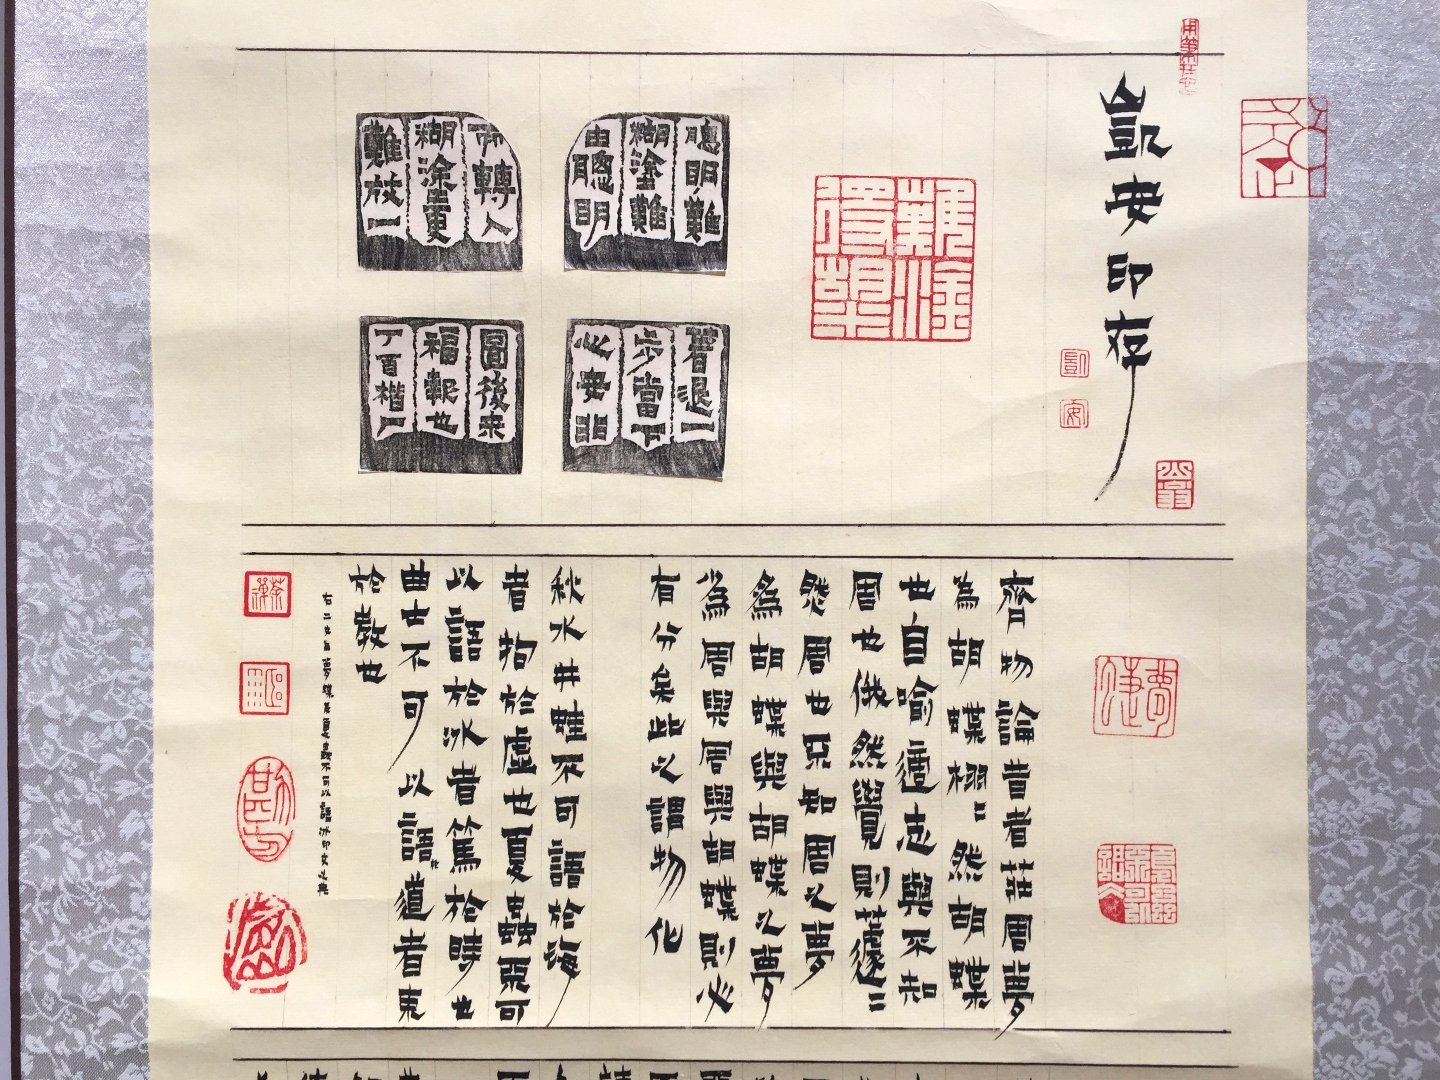 凱安印存
凱
安
難得糊塗
聰明難
糊塗難
由聰明
而轉入
糊塗更
難放一
著退一
步當下
心安非
圖後來
福報也
丁酉楷
齊物論昔者莊周夢
為胡蝶栩〻然胡蝶
也自喻適志與不知
周也俄然覺則蘧〻
然周也不知周之夢
為胡蝶與胡蝶之夢
為周與周與胡蝶則必
有分矣此之謂物化
秋水井蛙不可語於海
者拘於虛也夏蟲不可
以語於冰者篤於時也
曲士不可以語於道者束
於教也
右二出自夢蝶及夏蟲不可以語冰印文之典